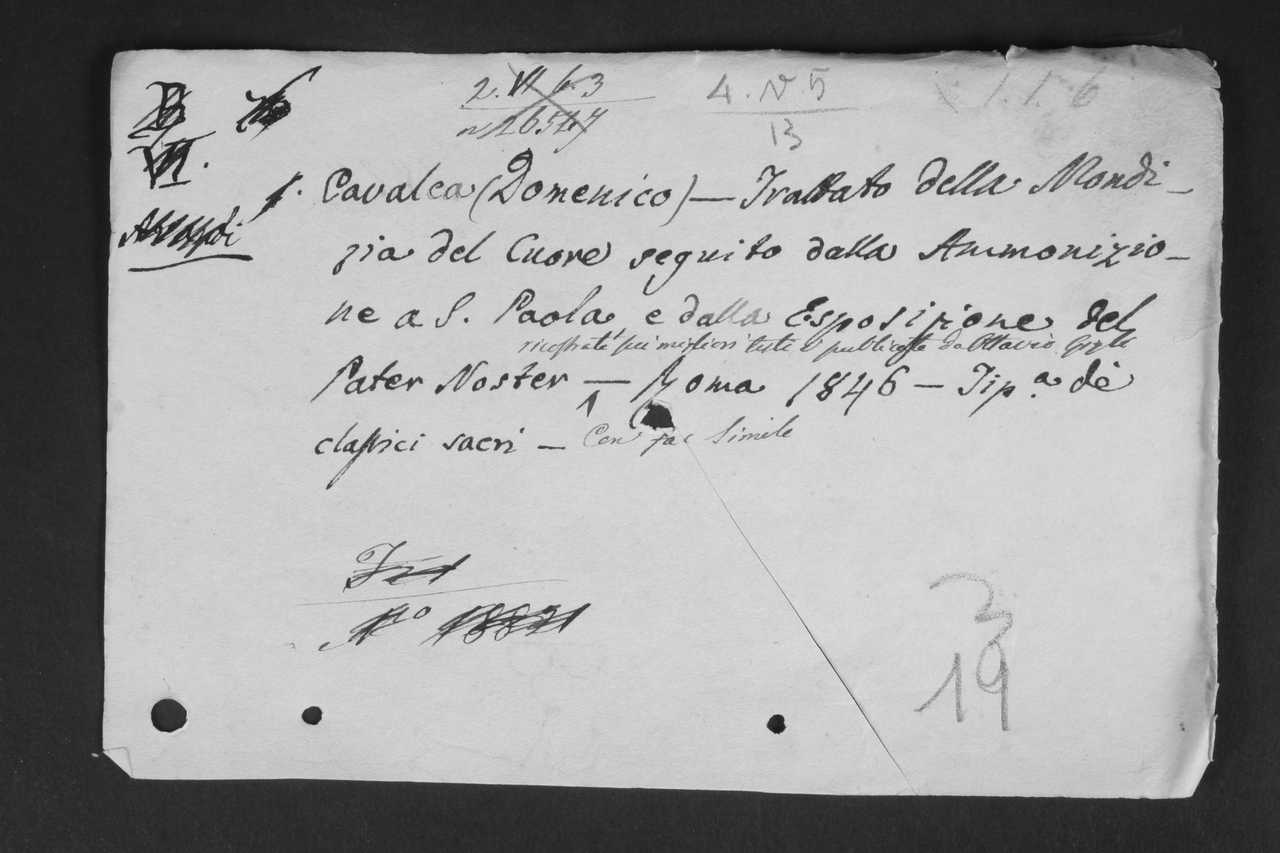 2. VI 6 3
n 26547
4. N 5
13
1. 1. 6
VI.
1. Cavalca (Domenico) — Trattato della Mondi-
zia del Cuore seguito dalla Ammonizio-
ne a S. Paola, e dalla Esposizione del
ricostrati sui migliori testi e pubblicate da Ottavio Gigli
Pater Noster — Roma 1846 — Tip.a de
classici sacri — Con fac Simile
No
3
19